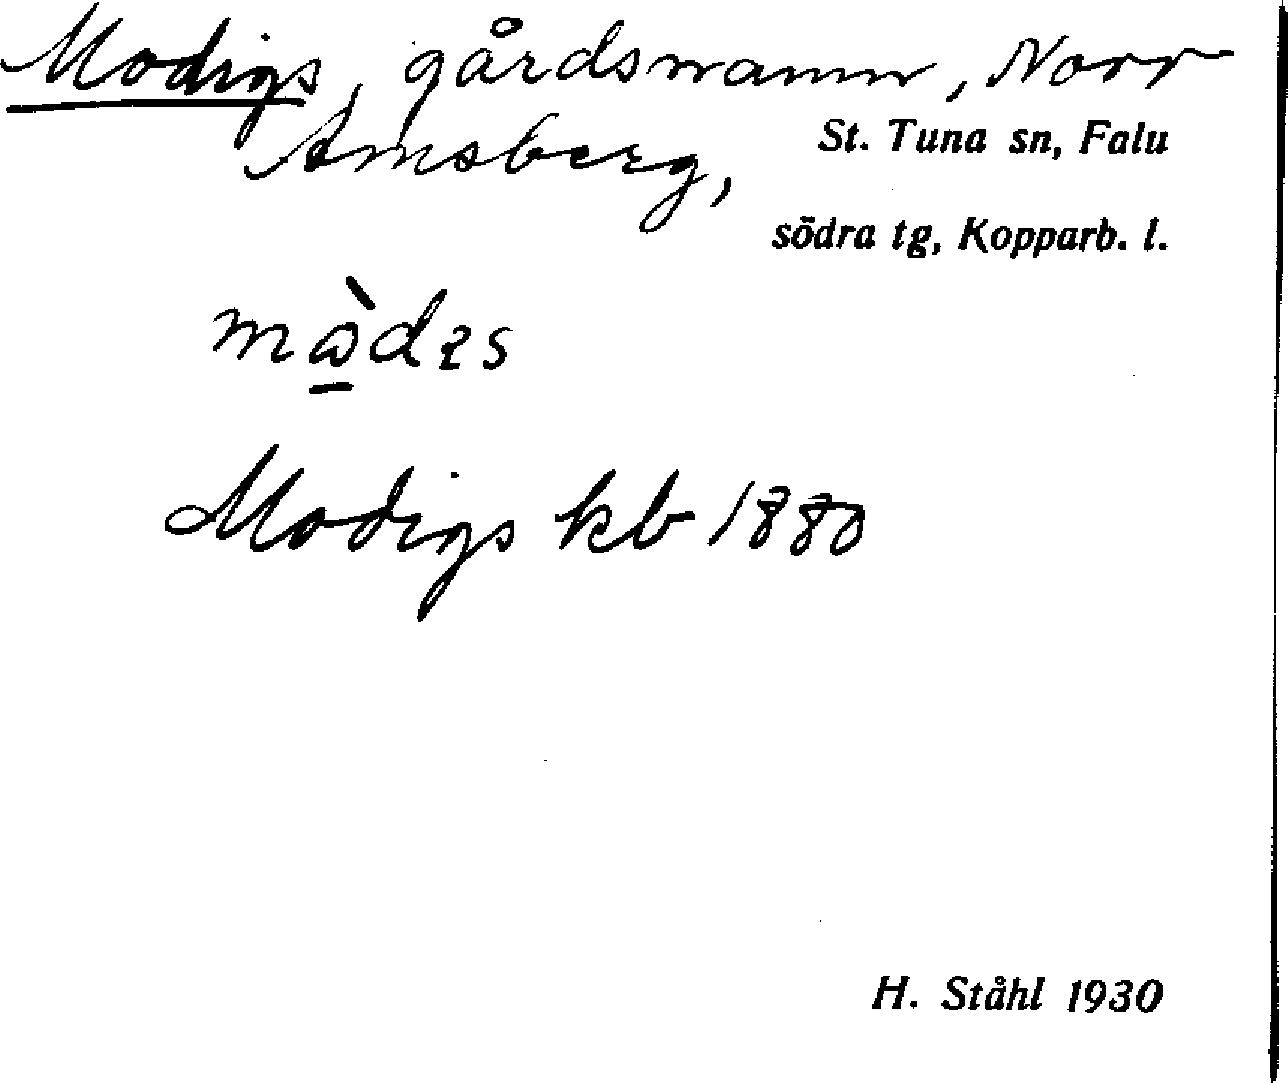 Modigs, gårdsnamn, Norr
Amsberg,
St. Tuna sn, Falu
södra tg, Kopparb. l.
Modigs kb 1880
H. Ståhl 1930